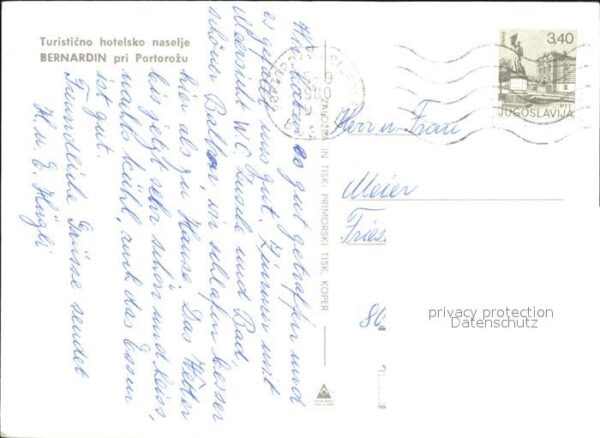 Turistično hotelsko naselje
BERNARDIN pri Portorožu
Wir haben es gut getroffen und
es gefällt uns gut. Zimmer mit
Meersicht WC Dusche und Bad,
schöner Balkon, wir schlafen besser
hier als zu Hause. Das Wetter
bis jetzt sehr schön und heiss,
nachts kühl, auch das Essen
ist gut.
Freundliche Grüsse sendet
H. u. E. Hügli
ZALOŽBA IN TISK: PRIMORSKI TISK, KOPER
3,40
PTT
JUGOSLAVIJA
Herr u. Frau
Meier
Fries
80
privacy protection
Datenschutz